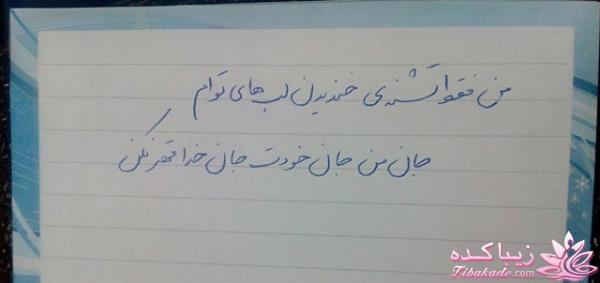 من فقط تشنه‌ی خندیدن لب های توام
جان من جان خودت جان خدا قهر نکن
زیباکده
Zibakade.com